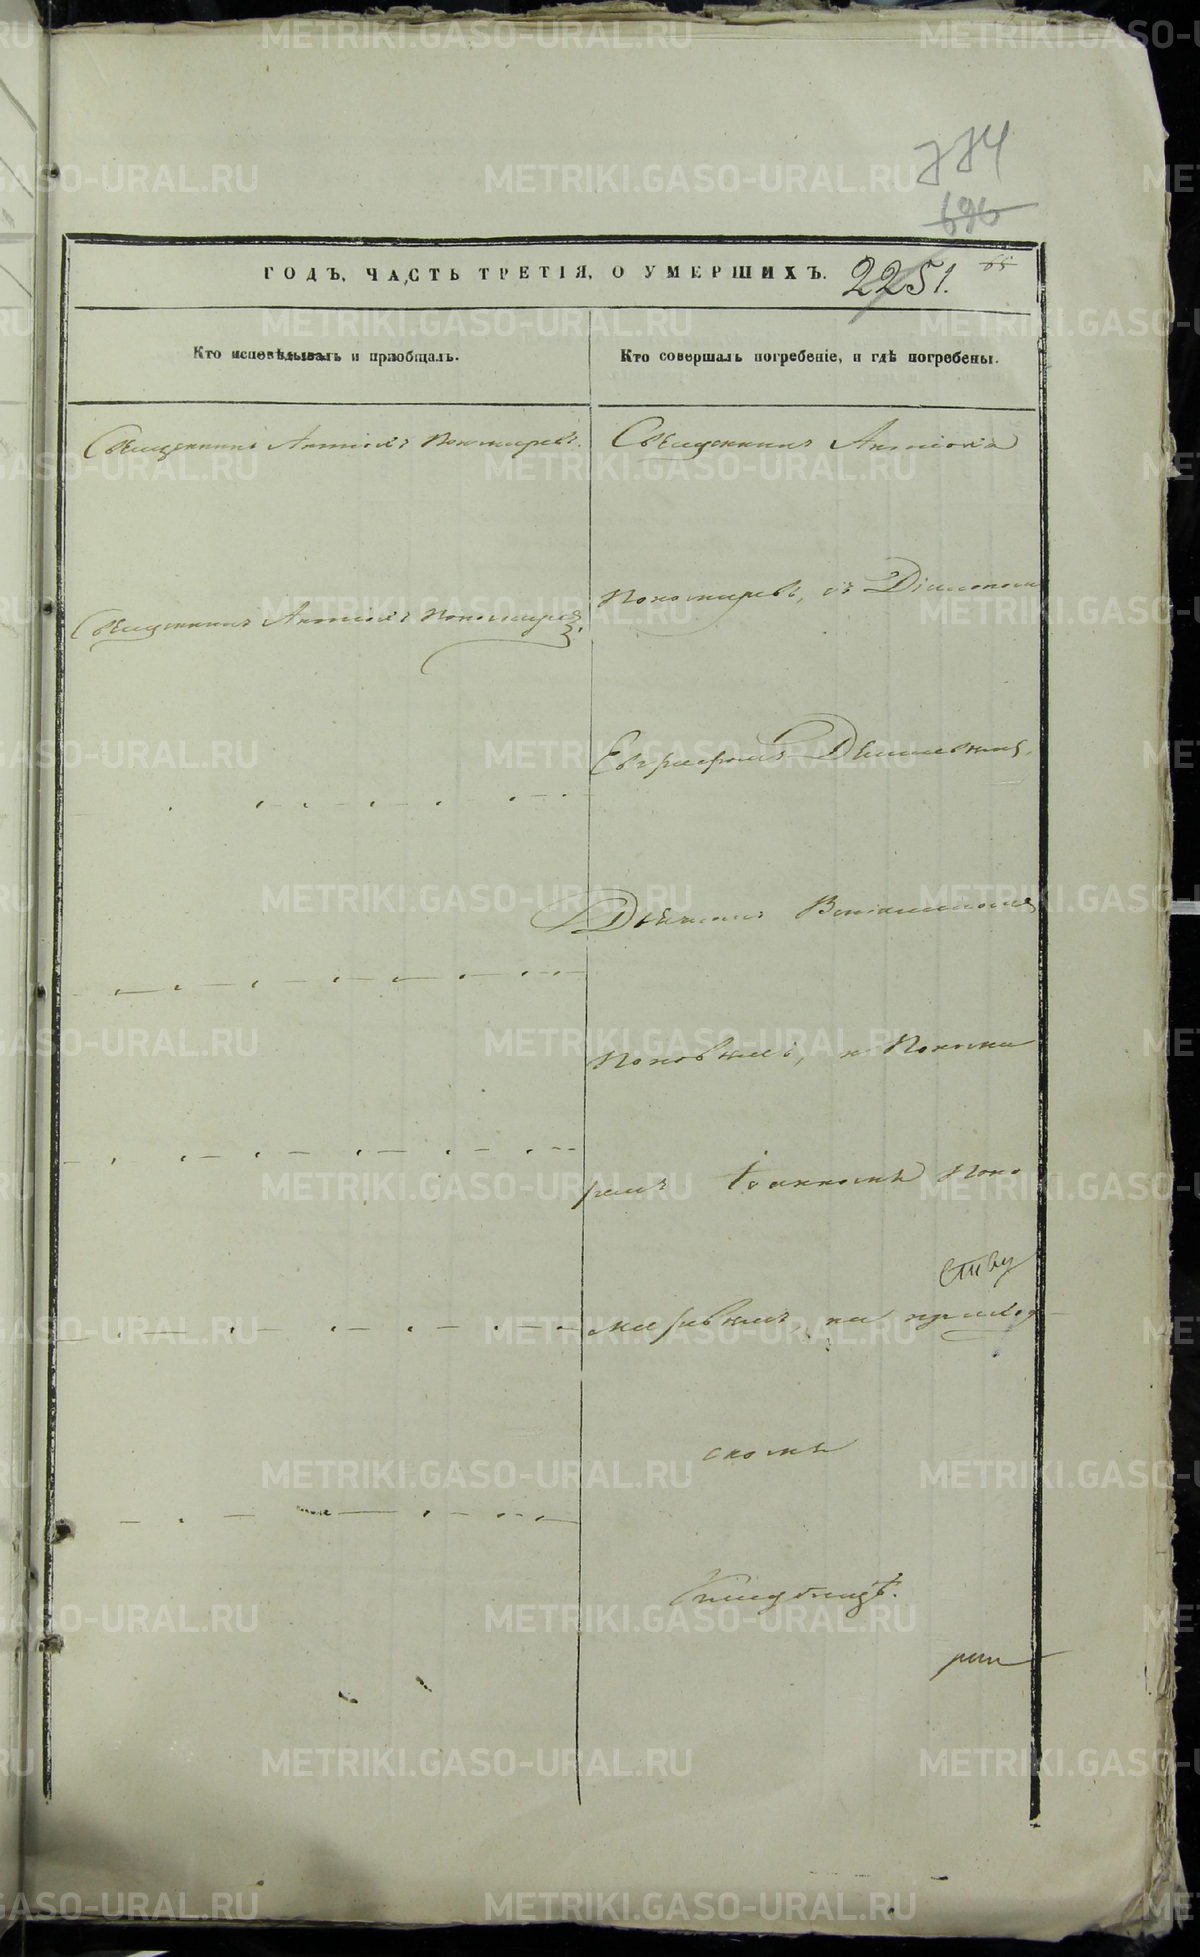 774
696
ГОДЪ, ЧАСТЬ ТРЕТІЯ, О УМЕРШИХЪ. 2251. 65
Кто исповѣдывалъ и пріобщалъ.
Кто совершалъ погребеніе, и гдѣ погребены.
Священникъ Антіохъ Пономаревъ.
Священникъ Антіохъ Пономаревъ.
Священникъ Антіохъ
Пономаревъ, съ Діакономъ
Евграфомъ
Дьячкомъ Веніаминомъ
Поповымъ, и Понома
ремъ Іоанномъ Поно
маревымъ, на приход
скомъ
кладбищѣ.
METRIKI.GASO-URAL.RU